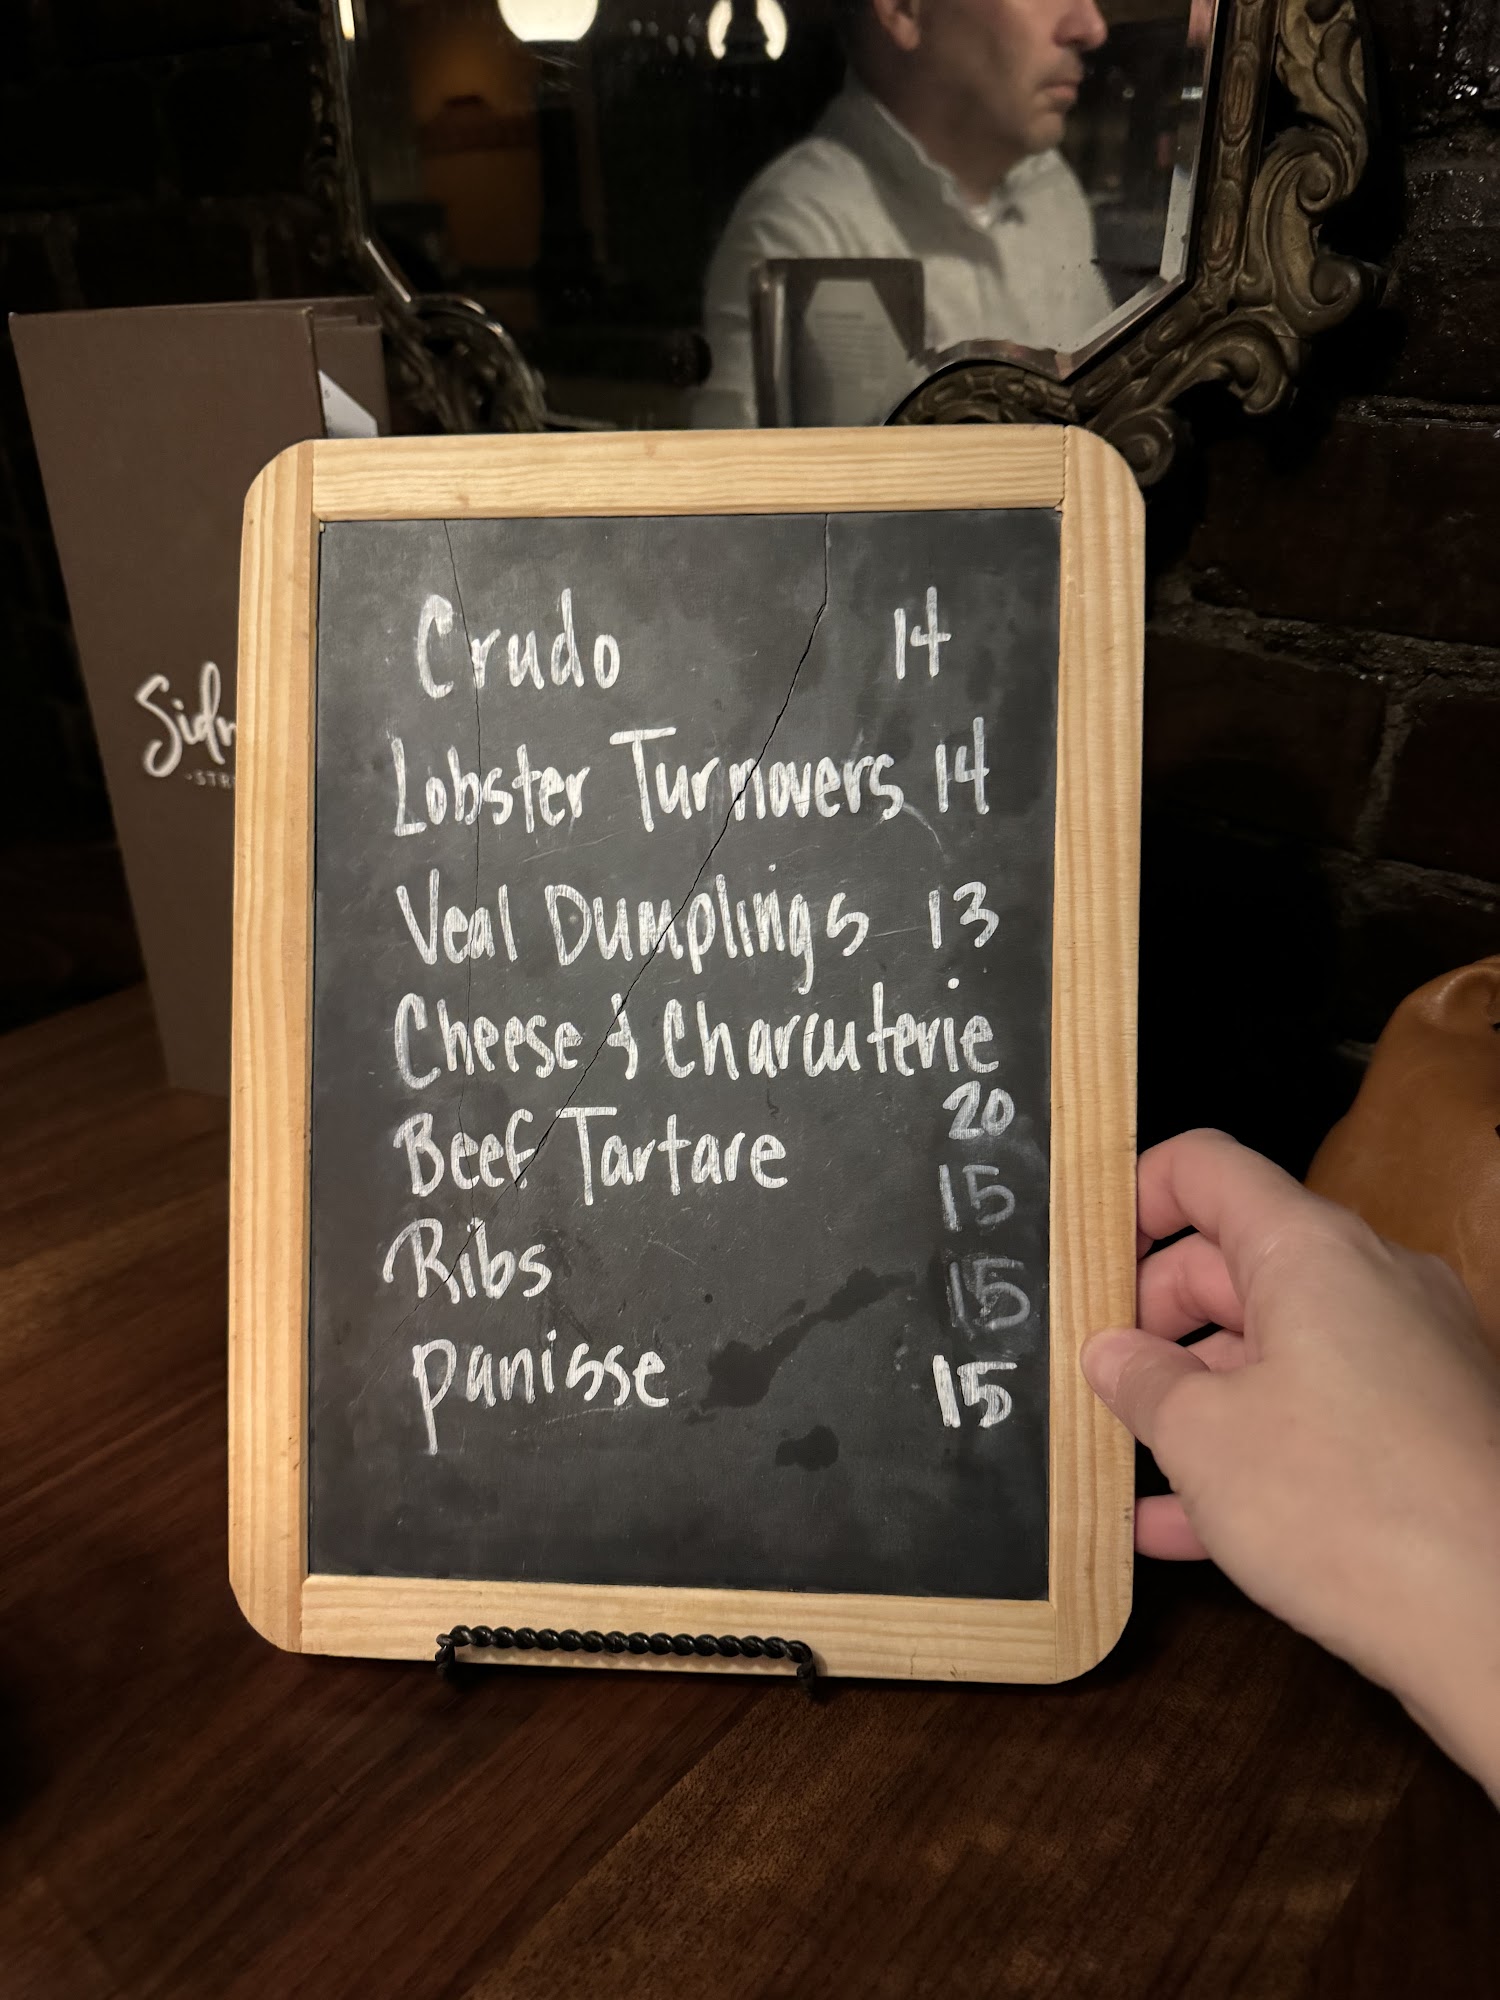 Crudo 14
Lobster Turnovers 14
Veal Dumplings 13
Cheese & Charcuterie
20
Beef Tartare 15
Ribs 15
Panisse 15